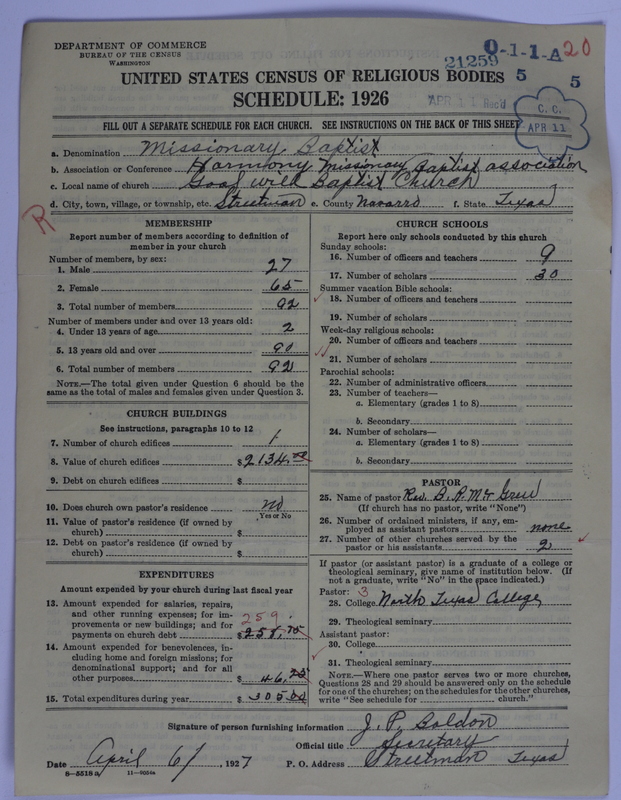 DEPARTMENT OF COMMERCE
BUREAU OF THE CENSUS
WASHINGTON
0-1-1-A 20
21259
5 5
UNITED STATES CENSUS OF RELIGIOUS BODIES
SCHEDULE: 1926
APR 11 Rec'd
C. C.
APR 11
FILL OUT A SEPARATE SCHEDULE FOR EACH CHURCH. SEE INSTRUCTIONS ON THE BACK OF THIS SHEET
a. Denomination Missionary Baptist
b. Association or Conference Harmony Missionary Baptist association
c. Local name of church Good will Baptist Church
d. City, town, village, or township, etc. Streetman e. County Navarro f. State Texas
R
MEMBERSHIP
Report number of members according to definition of
member in your church
Number of members, by sex:
1. Male 27
2. Female 65
3. Total number of members 92
Number of members under and over 13 years old:
4. Under 13 years of age 2
5. 13 years old and over 90
6. Total number of members 92
NOTE.—The total given under Question 6 should be the
same as the total of males and females given under Question 3.
CHURCH BUILDINGS
See instructions, paragraphs 10 to 12
7. Number of church edifices 1
8. Value of church edifices $2134.00
9. Debt on church edifices $
10. Does church own pastor's residence no
Yes or No
11. Value of pastor's residence (if owned by
church) $
12. Debt on pastor's residence (if owned by
church) $
EXPENDITURES
Amount expended by your church during last fiscal year
13. Amount expended for salaries, repairs,
and other running expenses; for im-
provements or new buildings; and for 259
payments on church debt $258.75
14. Amount expended for benevolences, in-
cluding home and foreign missions; for
denominational support; and for all
other purposes $46.25
15. Total expenditures during year $305.00
CHURCH SCHOOLS
Report here only schools conducted by this church
Sunday schools:
16. Number of officers and teachers 9
17. Number of scholars 30
Summer vacation Bible schools:
18. Number of officers and teachers
19. Number of scholars
Week-day religious schools:
20. Number of officers and teachers
21. Number of scholars
Parochial schools:
22. Number of administrative officers
23. Number of teachers—
a. Elementary (grades 1 to 8)
b. Secondary
24. Number of scholars—
a. Elementary (grades 1 to 8)
b. Secondary
PASTOR
25. Name of pastor Rev. B. R.
(If church has no pastor, write "None")
26. Number of ordained ministers, if any, em-
ployed as assistant pastors none
27. Number of other churches served by the
pastor or his assistants 2
If pastor (or assistant pastor) is a graduate of a college or
theological seminary, give name of institution below. (If
not a graduate, write "No" in the space indicated.)
Pastor: 3
28. College North Texas College
29. Theological seminary
Assistant pastor:
30. College
31. Theological seminary
NOTE.—Where one pastor serves two or more churches,
Questions 28 and 29 should be answered only on the schedule
for one of the churches; on the schedules for the other churches,
write "See schedule for church."
Signature of person furnishing information J. P. Boldon
Official title Secretary
Date April 6/, 1927 P. O. Address Streetman Texas
8—5518 a 11—9054a